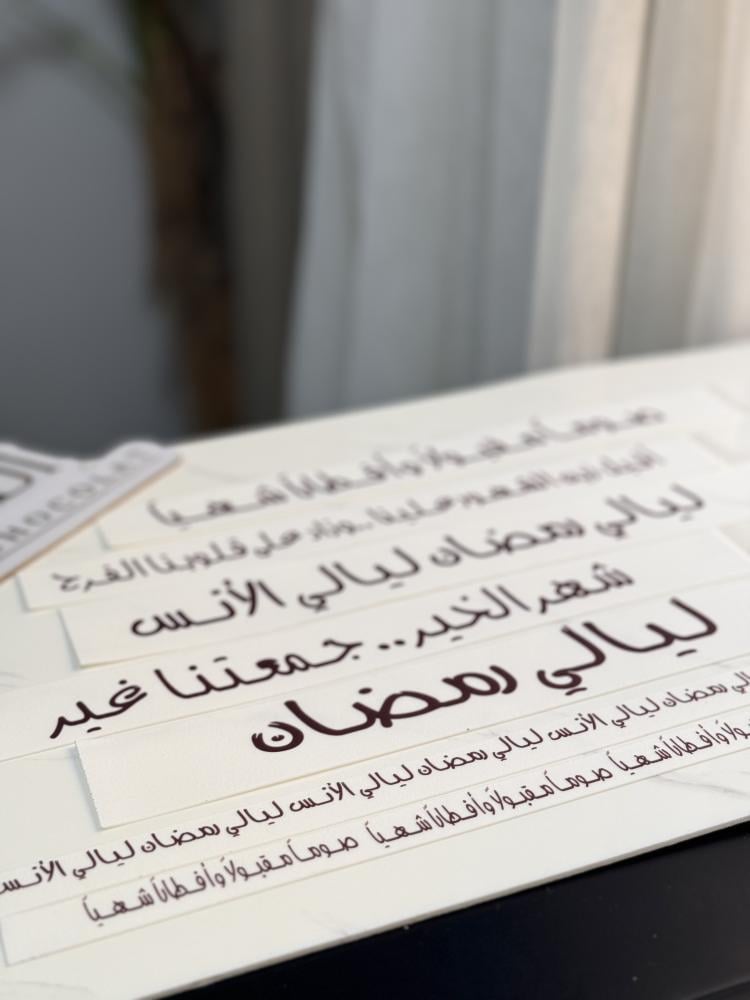 صوماً مقبولاً وأفطاراً شهياً
علينا ..وزاد على قلوبنا الفرح
ليالي رمضان ليالي الأنس
شهر الخير.. جمعتنا غير
ليالي رمضان
رمضان ليالي الأنس ليالي رمضان ليالي الأنس ليالي رمضان ليالي الأنس
وأفطاراً شهياً صوماً مقبولاً وأفطاراً شهياً صوماً مقبولاً وأفطاراً شهياً